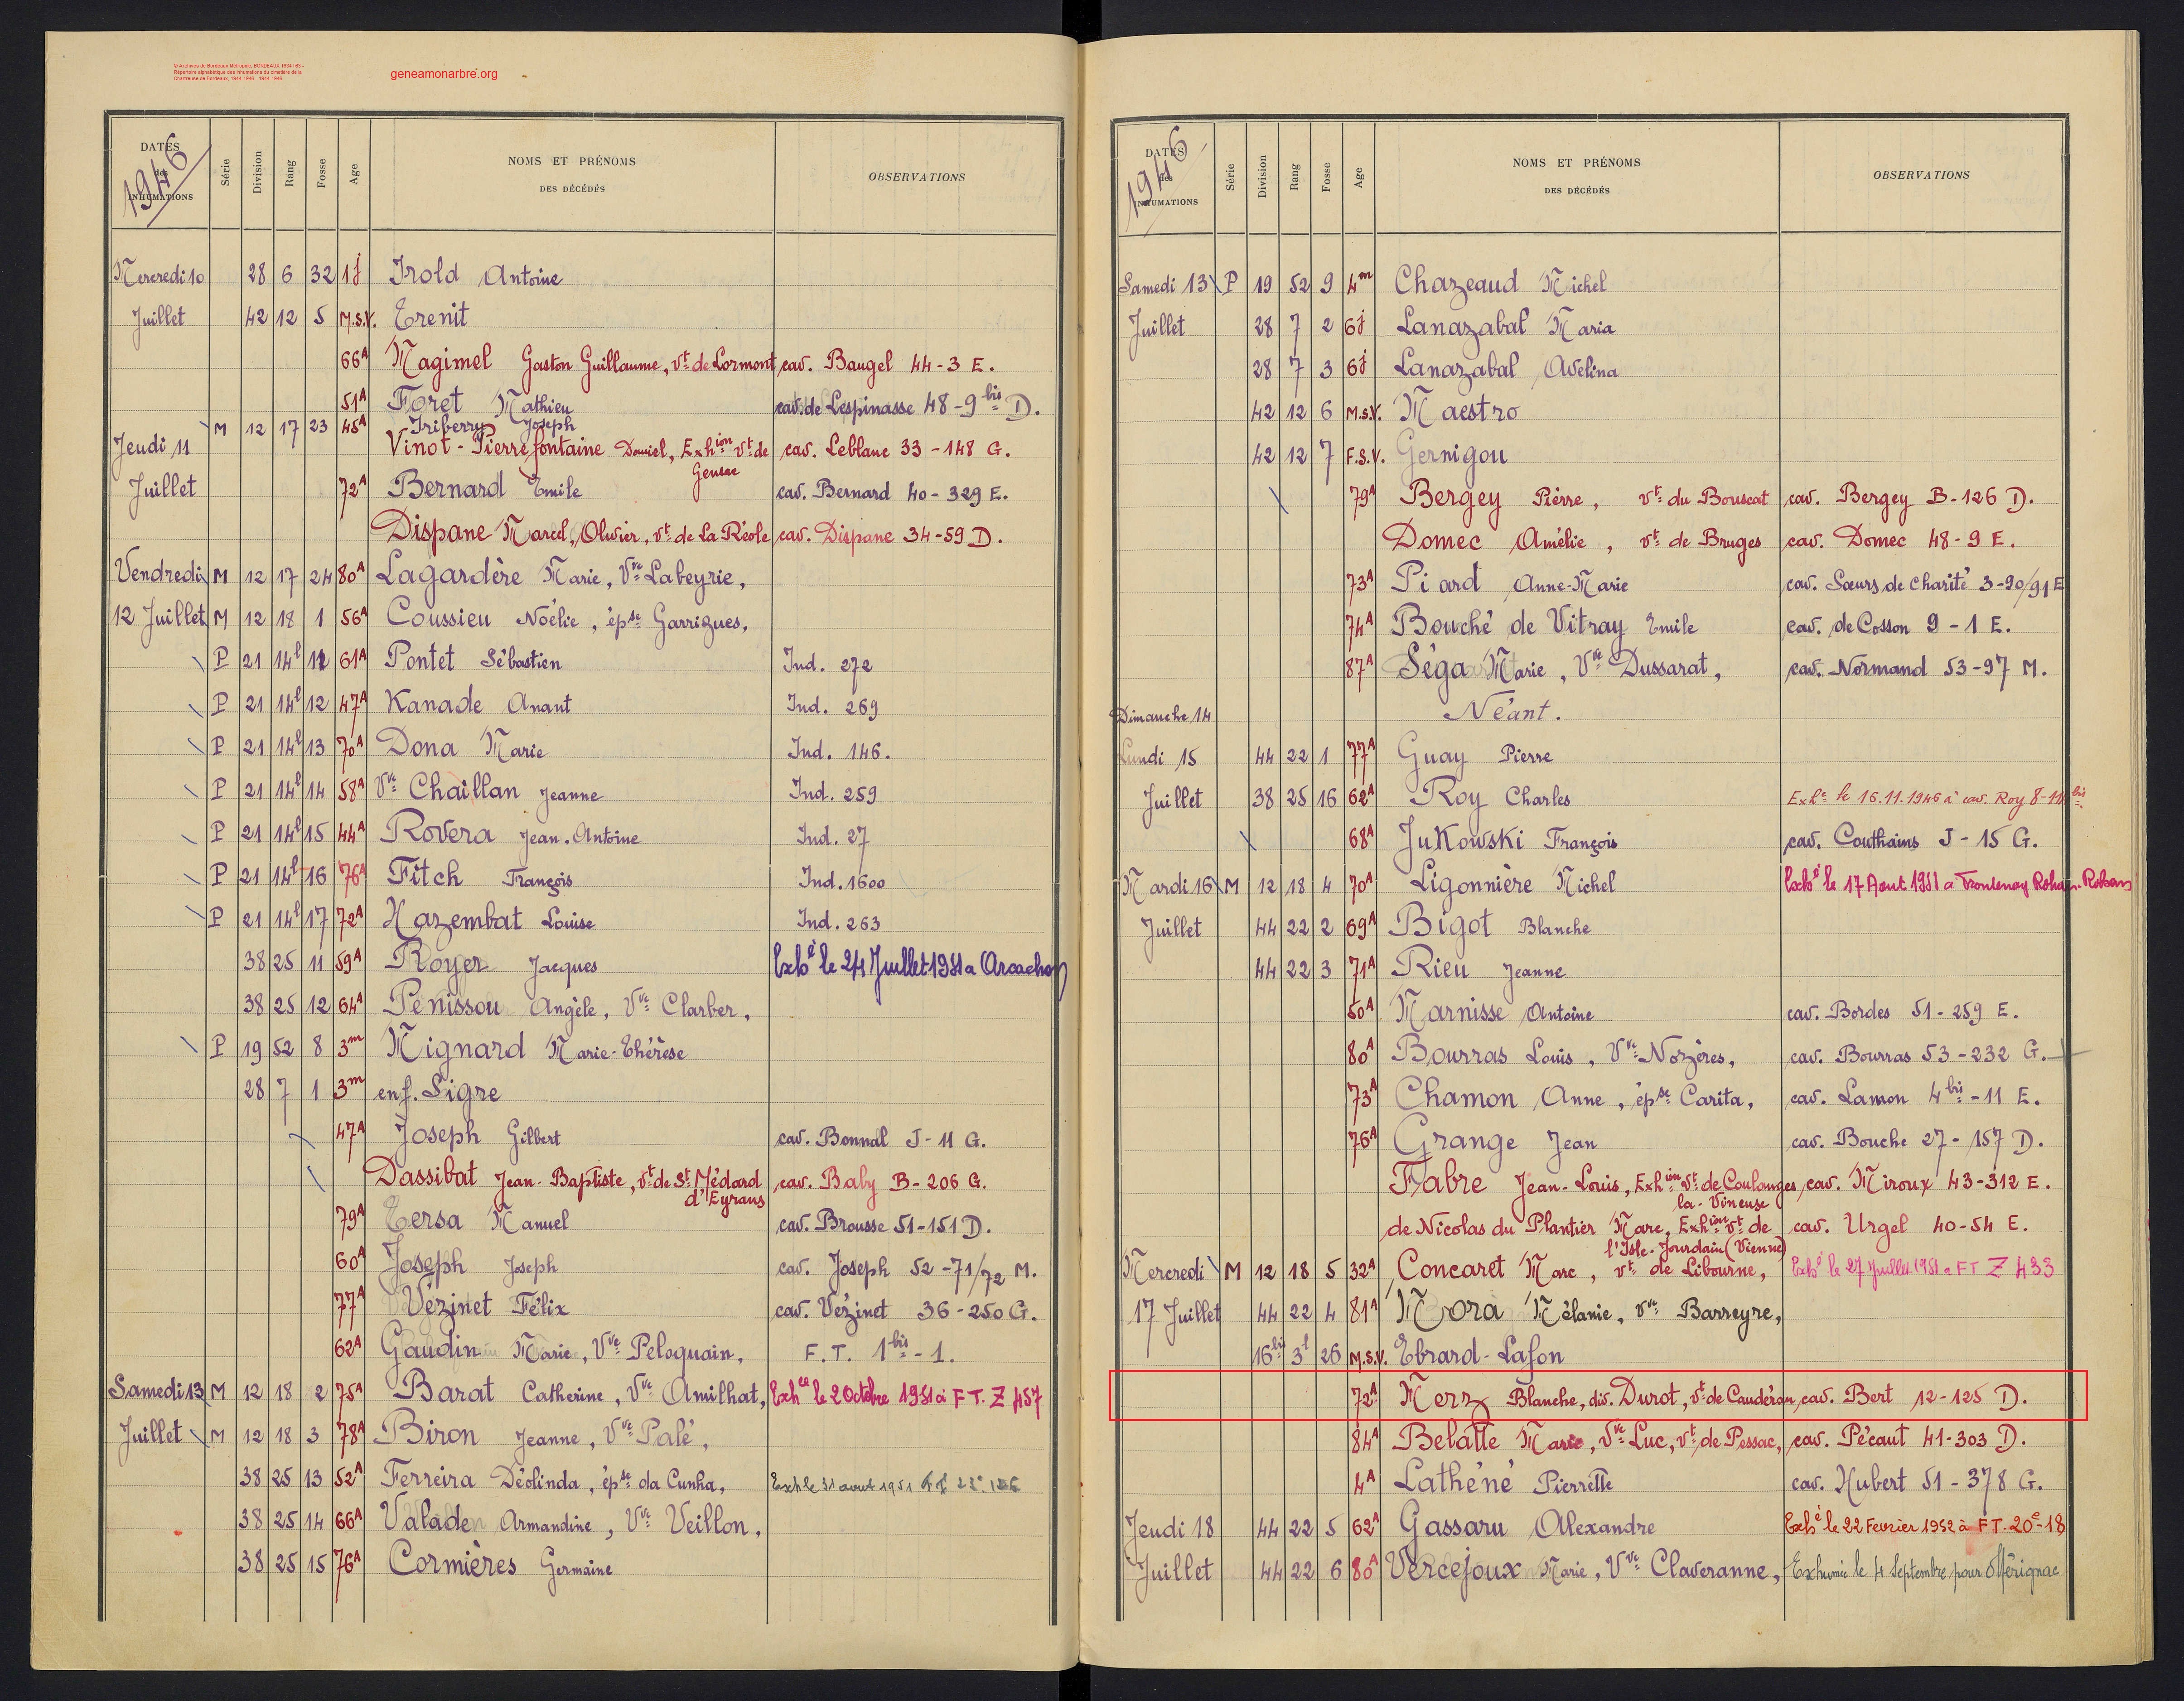 © Archives de Bordeaux Métropole, BORDEAUX 1634 I 63 -
Répertoire alphabétique des inhumations du cimetière de la
Chartreuse de Bordeaux, 1944-1946 - 1944-1946
geneamonarbre.org
DATES des INHUMATIONS 1946 Série Division Rang Fosse Age NOMS ET PRÉNOMS DES DÉCÉDÉS OBSERVATIONS
Mercredi 10 28 6 32 1j Irold Antoine
Juillet 42 12 5 M.S.V. Erenit
66A Magimel Gaston Guillaume, vt de Lormont cav. Baugel 44-3 E.
51A Foret Mathieu cav. de Lespinasse 48-9bis D.
M 12 17 23 45A Iriberry Joseph
Jeudi 11 Vinot-Pierrefontaine Daniel, Exhion vt de Gensac cav. Leblanc 33-148 G.
Juillet 72A Bernard Emile cav. Bernard 40-329 E.
Dispane Marcel, Olivier, vt de La Réole cav. Dispane 34-59 D.
Vendredi M 12 17 24 80A Lagardère Marie, Vve Labeyrie,
12 Juillet M 12 18 1 56A Coussieu Noélie, épse Garrigues,
P 21 14l 11 61A Pontet Sébastien Ind. 272
P 21 14l 12 47A Kanade Anant Ind. 269
P 21 14l 13 70A Dona Marie Ind. 146.
P 21 14l 14 58A Vve Chaillan Jeanne Ind. 259
P 21 14l 15 44A Rovera Jean-Antoine Ind. 27
P 21 14l 16 76A Fitch François Ind. 1600
P 21 14l 17 72A Hazembat Louise Ind. 263
38 25 11 59A Royer Jacques Exhé le 24 Juillet 1951 a Arcachon
38 25 12 64A Pénissou Angèle, Vve Clarber,
P 19 52 8 3m Mignard Marie-Thérèse
28 7 1 3m enf. Sigre
47A Joseph Gilbert cav. Bonnal J-11 G.
Dassibat Jean-Baptiste, vt de St Médard d'Eyrans cav. Baby B-206 G.
79A Tersa Manuel cav. Brousse 51-151 D.
60A Joseph Joseph cav. Joseph 52-71/72 M.
77A Vézinet Félix cav. Vézinet 36-250 G.
62A Gaudin Marie, Vve Peloquain, F.T. 1bis-1.
Samedi 13 M 12 18 2 75A Barat Catherine, Vve Amilhat, Exhée le 2 Octobre 1951 à FT. Z 457
Juillet M 12 18 3 78A Biron Jeanne, Vve Palé,
38 25 13 52A Ferreira Déolinda, épse da Cunha, Exh le 31 aout 1951 FT 23e
38 25 14 66A Valaden Armandine, Vve Veillon,
38 25 15 76A Cormières Germaine
DATES des INHUMATIONS 1946 Série Division Rang Fosse Age NOMS ET PRÉNOMS DES DÉCÉDÉS OBSERVATIONS
Samedi 13 P 19 52 9 4m Chazeaud Michel
Juillet 28 7 2 6j Lanazabal Maria
28 7 3 6j Lanazabal Avelina
42 12 6 M.S.V. Maestro
42 12 7 F.S.V. Gernigou
79A Bergey Pierre, vt du Bouscat cav. Bergey B-126 D.
Domec Amélie, vt de Bruges cav. Domec 48-9 E.
73A Piard Anne-Marie cav. Sœurs de Charité 3-90/91 E
74A Bouché de Vitray Emile cav. de Cosson 9-1 E.
87A Séga Marie, Vve Dussarat, cav. Normand 53-97 M.
Dimanche 14 Néant.
Lundi 15 44 22 1 77A Guay Pierre
Juillet 38 25 16 62A Roy Charles Exhé le 16.11.1946 à cav. Roy 8-11bis
68A Jukowski François cav. Couthains J-15 G.
Mardi 16 M 12 18 4 70A Ligonnière Michel Exhé le 17 Aout 1951 a Frontenay Rohan-Rohan
Juillet 44 22 2 69A Bigot Blanche
44 22 3 71A Rieu Jeanne
50A Marnisse Antoine cav. Bordes 51-259 E.
80A Bourras Louis, Vve Nozères, cav. Bourras 53-232 G.
73A Chamon Anne, épse Carita, cav. Lamon 4bis-11 E.
76A Grange Jean cav. Bouche 27-157 D.
Fabre Jean-Louis, Exhion vt de Coulanges la-Vineuse cav. Miroux 43-312 E.
de Nicolas du Plantier Marc, Exhion vt de l'Isle-Jourdain (Vienne) cav. Urgel 40-54 E.
Mercredi M 12 18 5 32A Concaret Marc, vt de Libourne, Exhé le 27 Juillet 1951 a FT Z 433
17 Juillet 44 22 4 81A Mora Mélanie, Vve Barreyre,
16bis 3l 26 M.S.V. Ebrard-Lafon
72A Merz Blanche, div. Durot, vt de Caudéran cav. Bert 12-125 D.
84A Belatte Marie, Vve Luc, vt de Pessac, cav. Pécaut 41-303 D.
4A Lathéné Pierrette cav. Hubert 51-378 G.
Jeudi 18 44 22 5 62A Gassaru Alexandre Exhé le 22 Fevrier 1952 à FT. 20e-18
Juillet 44 22 6 80A Vercejoux Marie, Vve Claveranne, Exhumée le 4 Septembre pour Mérignac